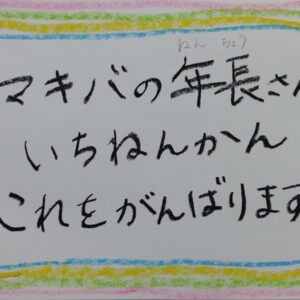 ねん ちょう
マキバの年長さん
いちねんかん
これをがんばります